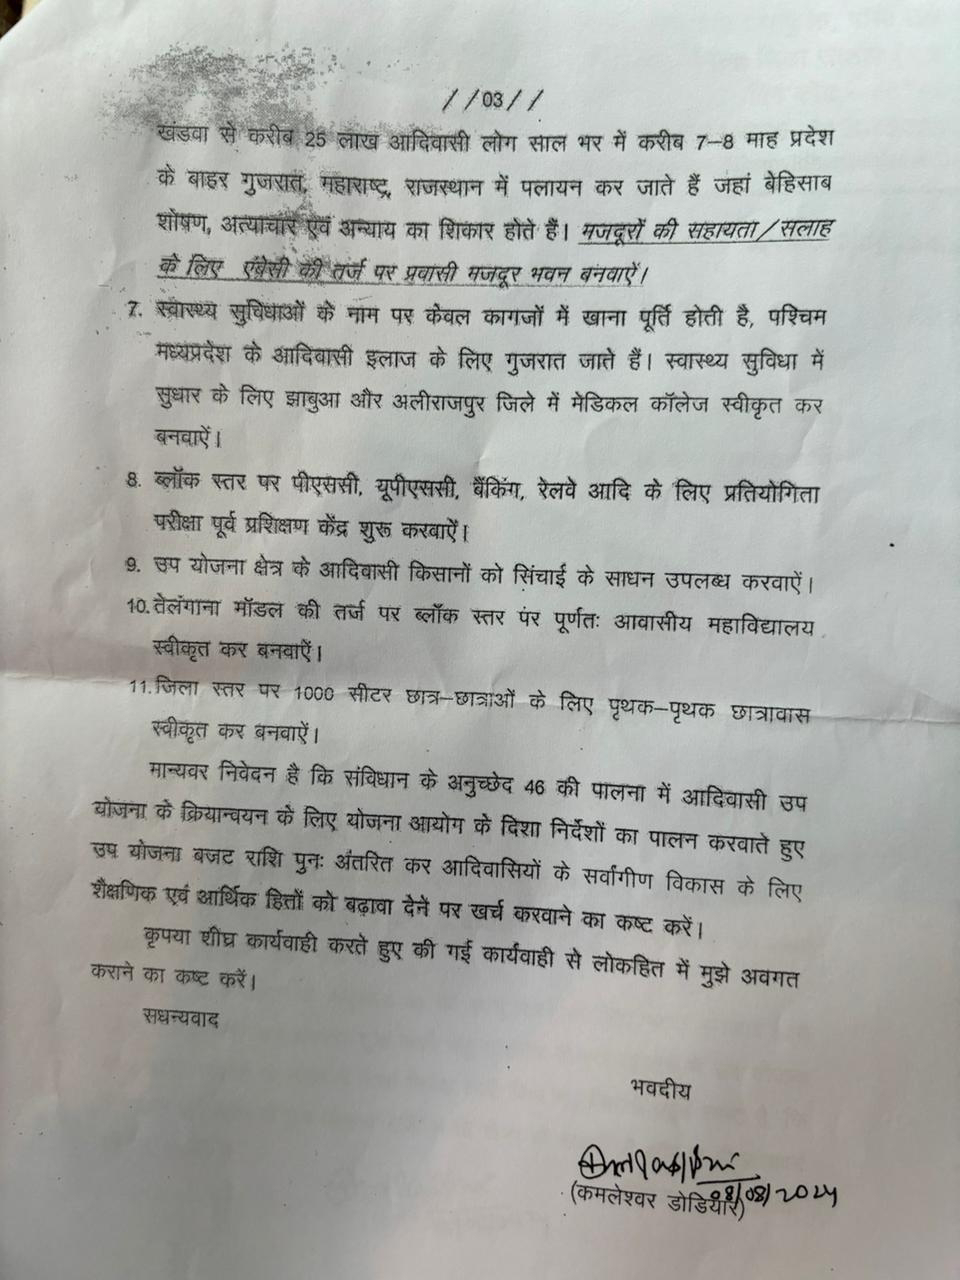 //03//
खंडवा से करीब 25 लाख आदिवासी लोग साल भर में करीब 7–8 माह प्रदेश
के बाहर गुजरात, महाराष्ट्र, राजस्थान में पलायन कर जाते हैं जहां बेहिसाब
शोषण, अत्याचार एवं अन्याय का शिकार होते हैं। मजदूरों की सहायता/सलाह
के लिए एंबेसी की तर्ज पर प्रवासी मजदूर भवन बनवाऐं।
7. स्वास्थ्य सुविधाओं के नाम पर केवल कागजों में खाना पूर्ति होती है, पश्चिम
मध्यप्रदेश के आदिवासी इलाज के लिए गुजरात जाते हैं। स्वास्थ्य सुविधा में
सुधार के लिए झाबुआ और अलीराजपुर जिले में मेडिकल कॉलेज स्वीकृत कर
बनवाऐं।
8. ब्लॉक स्तर पर पीएससी, यूपीएससी, बैंकिंग, रेलवे आदि के लिए प्रतियोगिता
परीक्षा पूर्व प्रशिक्षण केंद्र शुरू करवाऐं।
9. उप योजना क्षेत्र के आदिवासी किसानों को सिंचाई के साधन उपलब्ध करवाऐं।
10. तेलंगाना मॉडल की तर्ज पर ब्लॉक स्तर पर पूर्णतः आवासीय महाविद्यालय
स्वीकृत कर बनवाऐं।
11. जिला स्तर पर 1000 सीटर छात्र–छात्राओं के लिए पृथक–पृथक छात्रावास
स्वीकृत कर बनवाऐं।
मान्यवर निवेदन है कि संविधान के अनुच्छेद 46 की पालना में आदिवासी उप
योजना के क्रियान्वयन के लिए योजना आयोग के दिशा निर्देशों का पालन करवाते हुए
उप योजना बजट राशि पुनः अंतरित कर आदिवासियों के सर्वांगीण विकास के लिए
शैक्षणिक एवं आर्थिक हितों को बढ़ावा देने पर खर्च करवाने का कष्ट करें।
कृपया शीघ्र कार्यवाही करते हुए की गई कार्यवाही से लोकहित में मुझे अवगत
कराने का कष्ट करें।
सधन्यवाद
भवदीय
08/08/2024
(कमलेश्वर डोडियार)